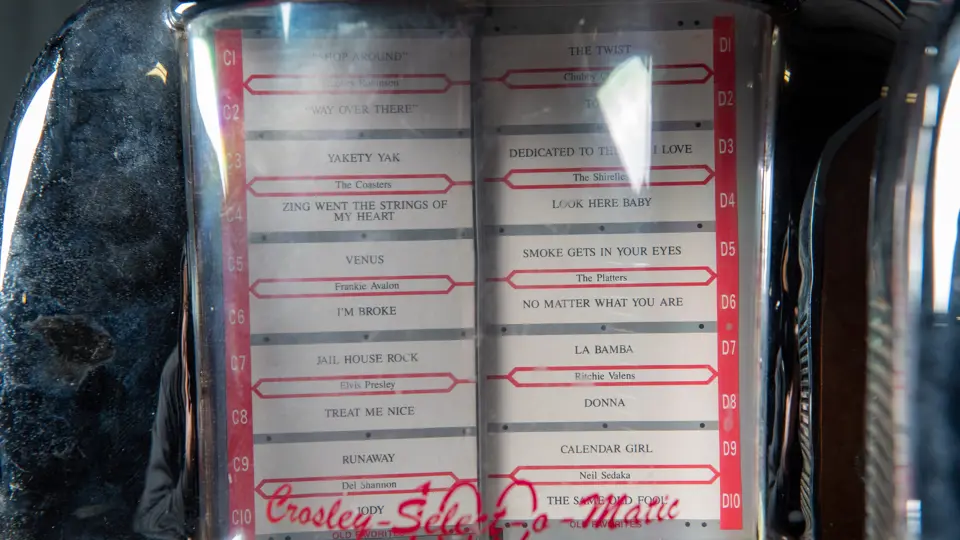 C1
"HOP AROUND"
Robinson
C2
"WAY OVER THERE"
C3
YAKETY YAK
The Coasters
C4
ZING WENT THE STRINGS OF
MY HEART
C5
VENUS
Frankie Avalon
C6
I'M BROKE
C7
JAIL HOUSE ROCK
Elvis Presley
C8
TREAT ME NICE
C9
RUNAWAY
Del Shannon
C10
JODY
OLD FAVORITES
D1
THE TWIST
Chubby
D2
D3
DEDICATED TO THE I LOVE
The Shirelles
D4
LOOK HERE BABY
D5
SMOKE GETS IN YOUR EYES
The Platters
D6
NO MATTER WHAT YOU ARE
D7
LA BAMBA
Ritchie Valens
D8
DONNA
D9
CALENDAR GIRL
Neil Sedaka
D10
THE SAME OLD FOOL
OLD FAVORITES
Crosley-Select-o-Matic